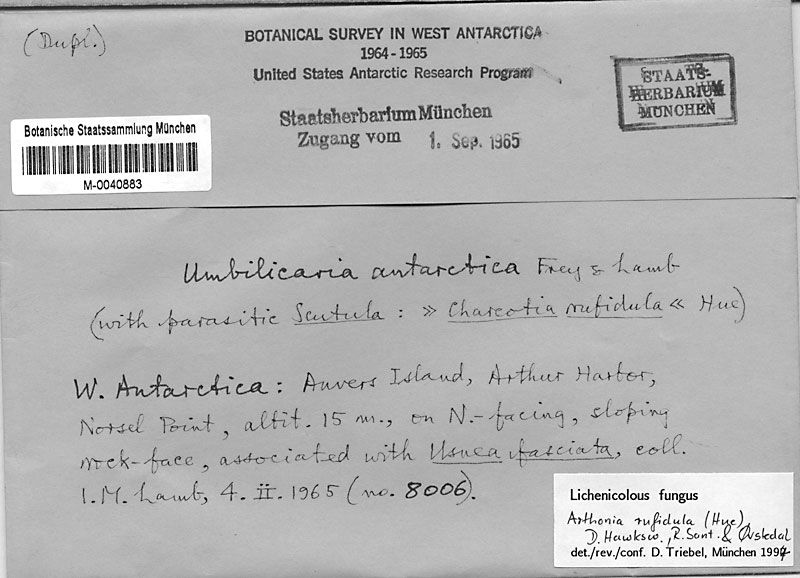 (Dupl.)
BOTANICAL SURVEY IN WEST ANTARCTICA
1964-1965
United States Antarctic Research Program
STAATS-
HERBARIUM
MÜNCHEN
Staatsherbarium München
Zugang vom 1. Sep. 1965
Botanische Staatssammlung München
M-0040883
Umbilicaria antarctica Frey & Lamb
(with parasitic Scutula : » Charcotia rufidula « Hue)
W. Antarctica: Anvers Island, Arthur Harbor,
Norsel Point, altit. 15 m., on N.-facing, sloping
rock-face, associated with Usnea fasciata, coll.
I.M. Lamb, 4. II. 1965 (no. 8006).
Lichenicolous fungus
Arthonia rufidula (Hue)
D. Hawksw., R. Sant. & Øvstedal
det./rev./conf. D. Triebel, München 1994